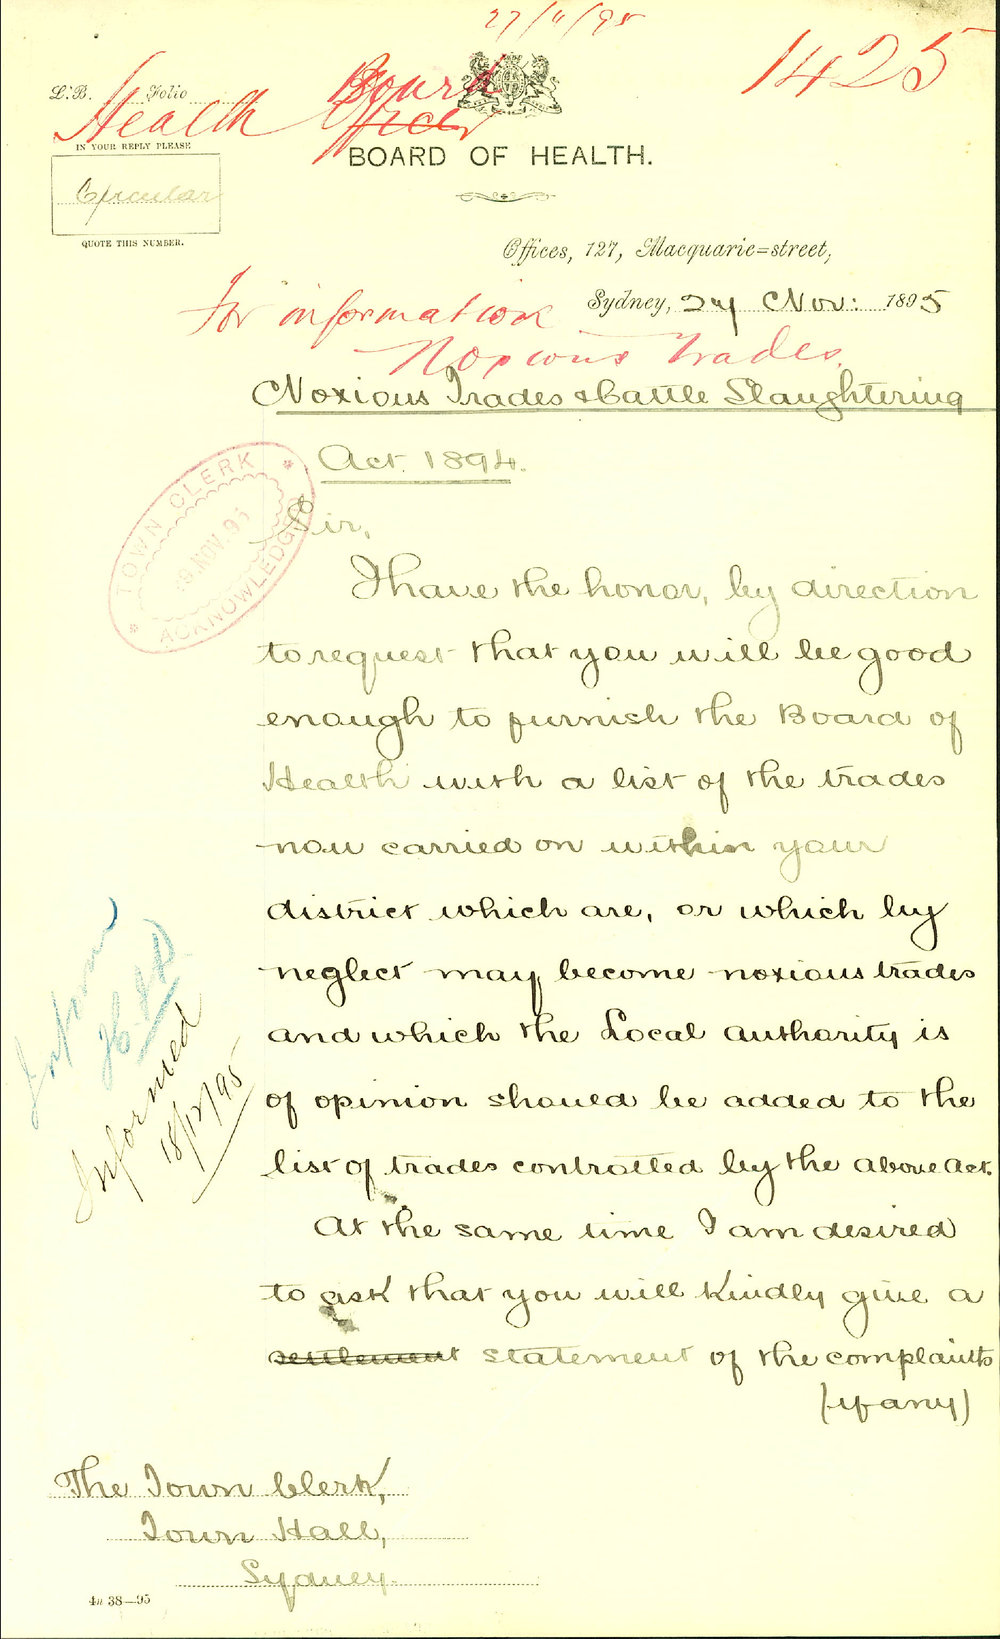 27/11/95
1425
L.B. Folio
Health Board
Officer
IN YOUR REPLY PLEASE
Circular
QUOTE THIS NUMBER.
BOARD OF HEALTH.
Offices, 127, Macquarie=street,
Sydney, 27 Nov: 1895
For information
Noxious Trades.
Noxious Trades & Cattle Slaughtering
Act. 1894.
TOWN CLERK
NOV. 95
ACKNOWLEDGED
Sir,
I have the honor, by direction
to request that you will be good
enough to furnish the Board of
Health with a list of the trades
now carried on within your
district which are, or which by
neglect may become noxious trades
and which the Local Authority is
of opinion should be added to the
list of trades controlled by the above Act.
At the same time I am desired
to ask that you will kindly give a
settlement statement of the complaints
(if any)
Inform
Informed
18/12/95
The Town Clerk,
Town Hall,
Sydney.
38—95